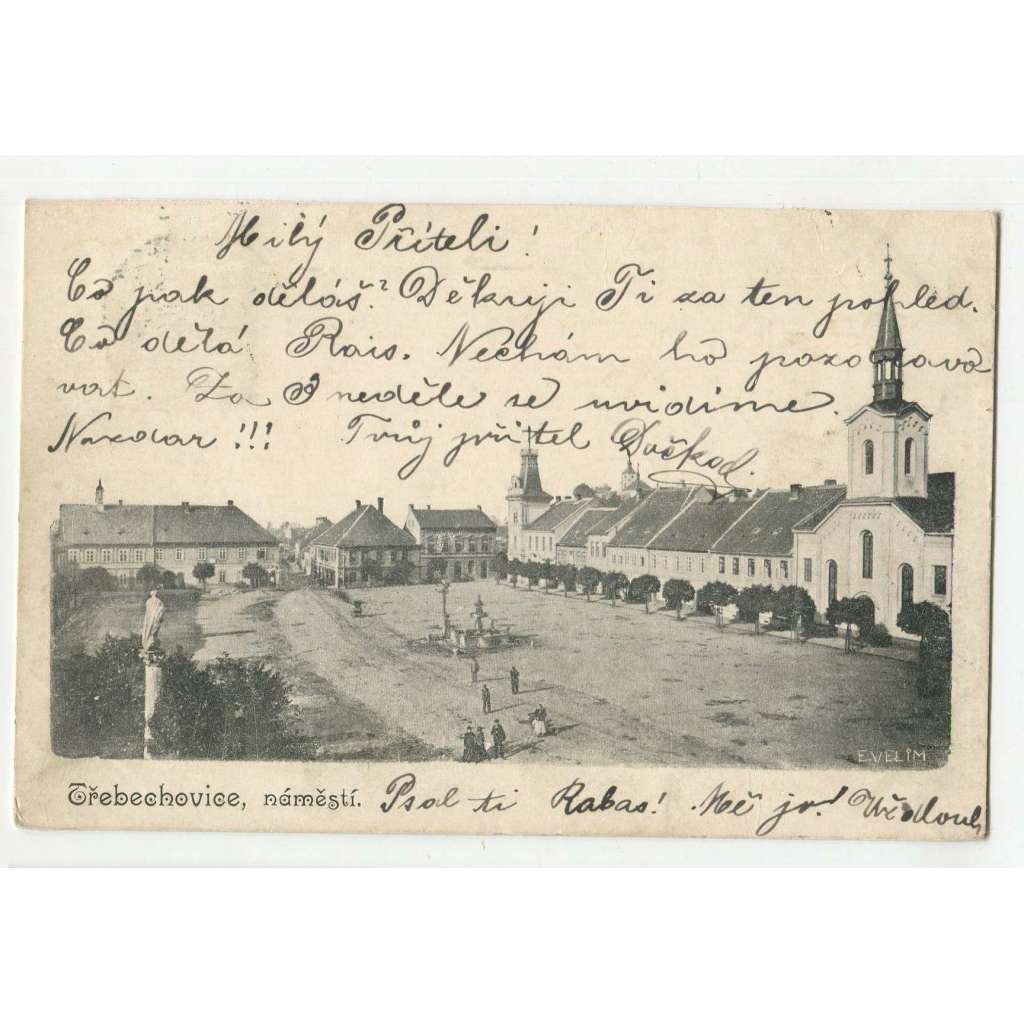 Milý Příteli!
Co pak děláš? Děkuji Ti za ten pohled.
Co dělá Rais. Nechám ho pozdravo
vat. Za 3 neděle se uvidíme.
Nazdar!!! Tvůj přítel
E.VELÍM
Třebechovice, náměstí. Psal ti Rabas!